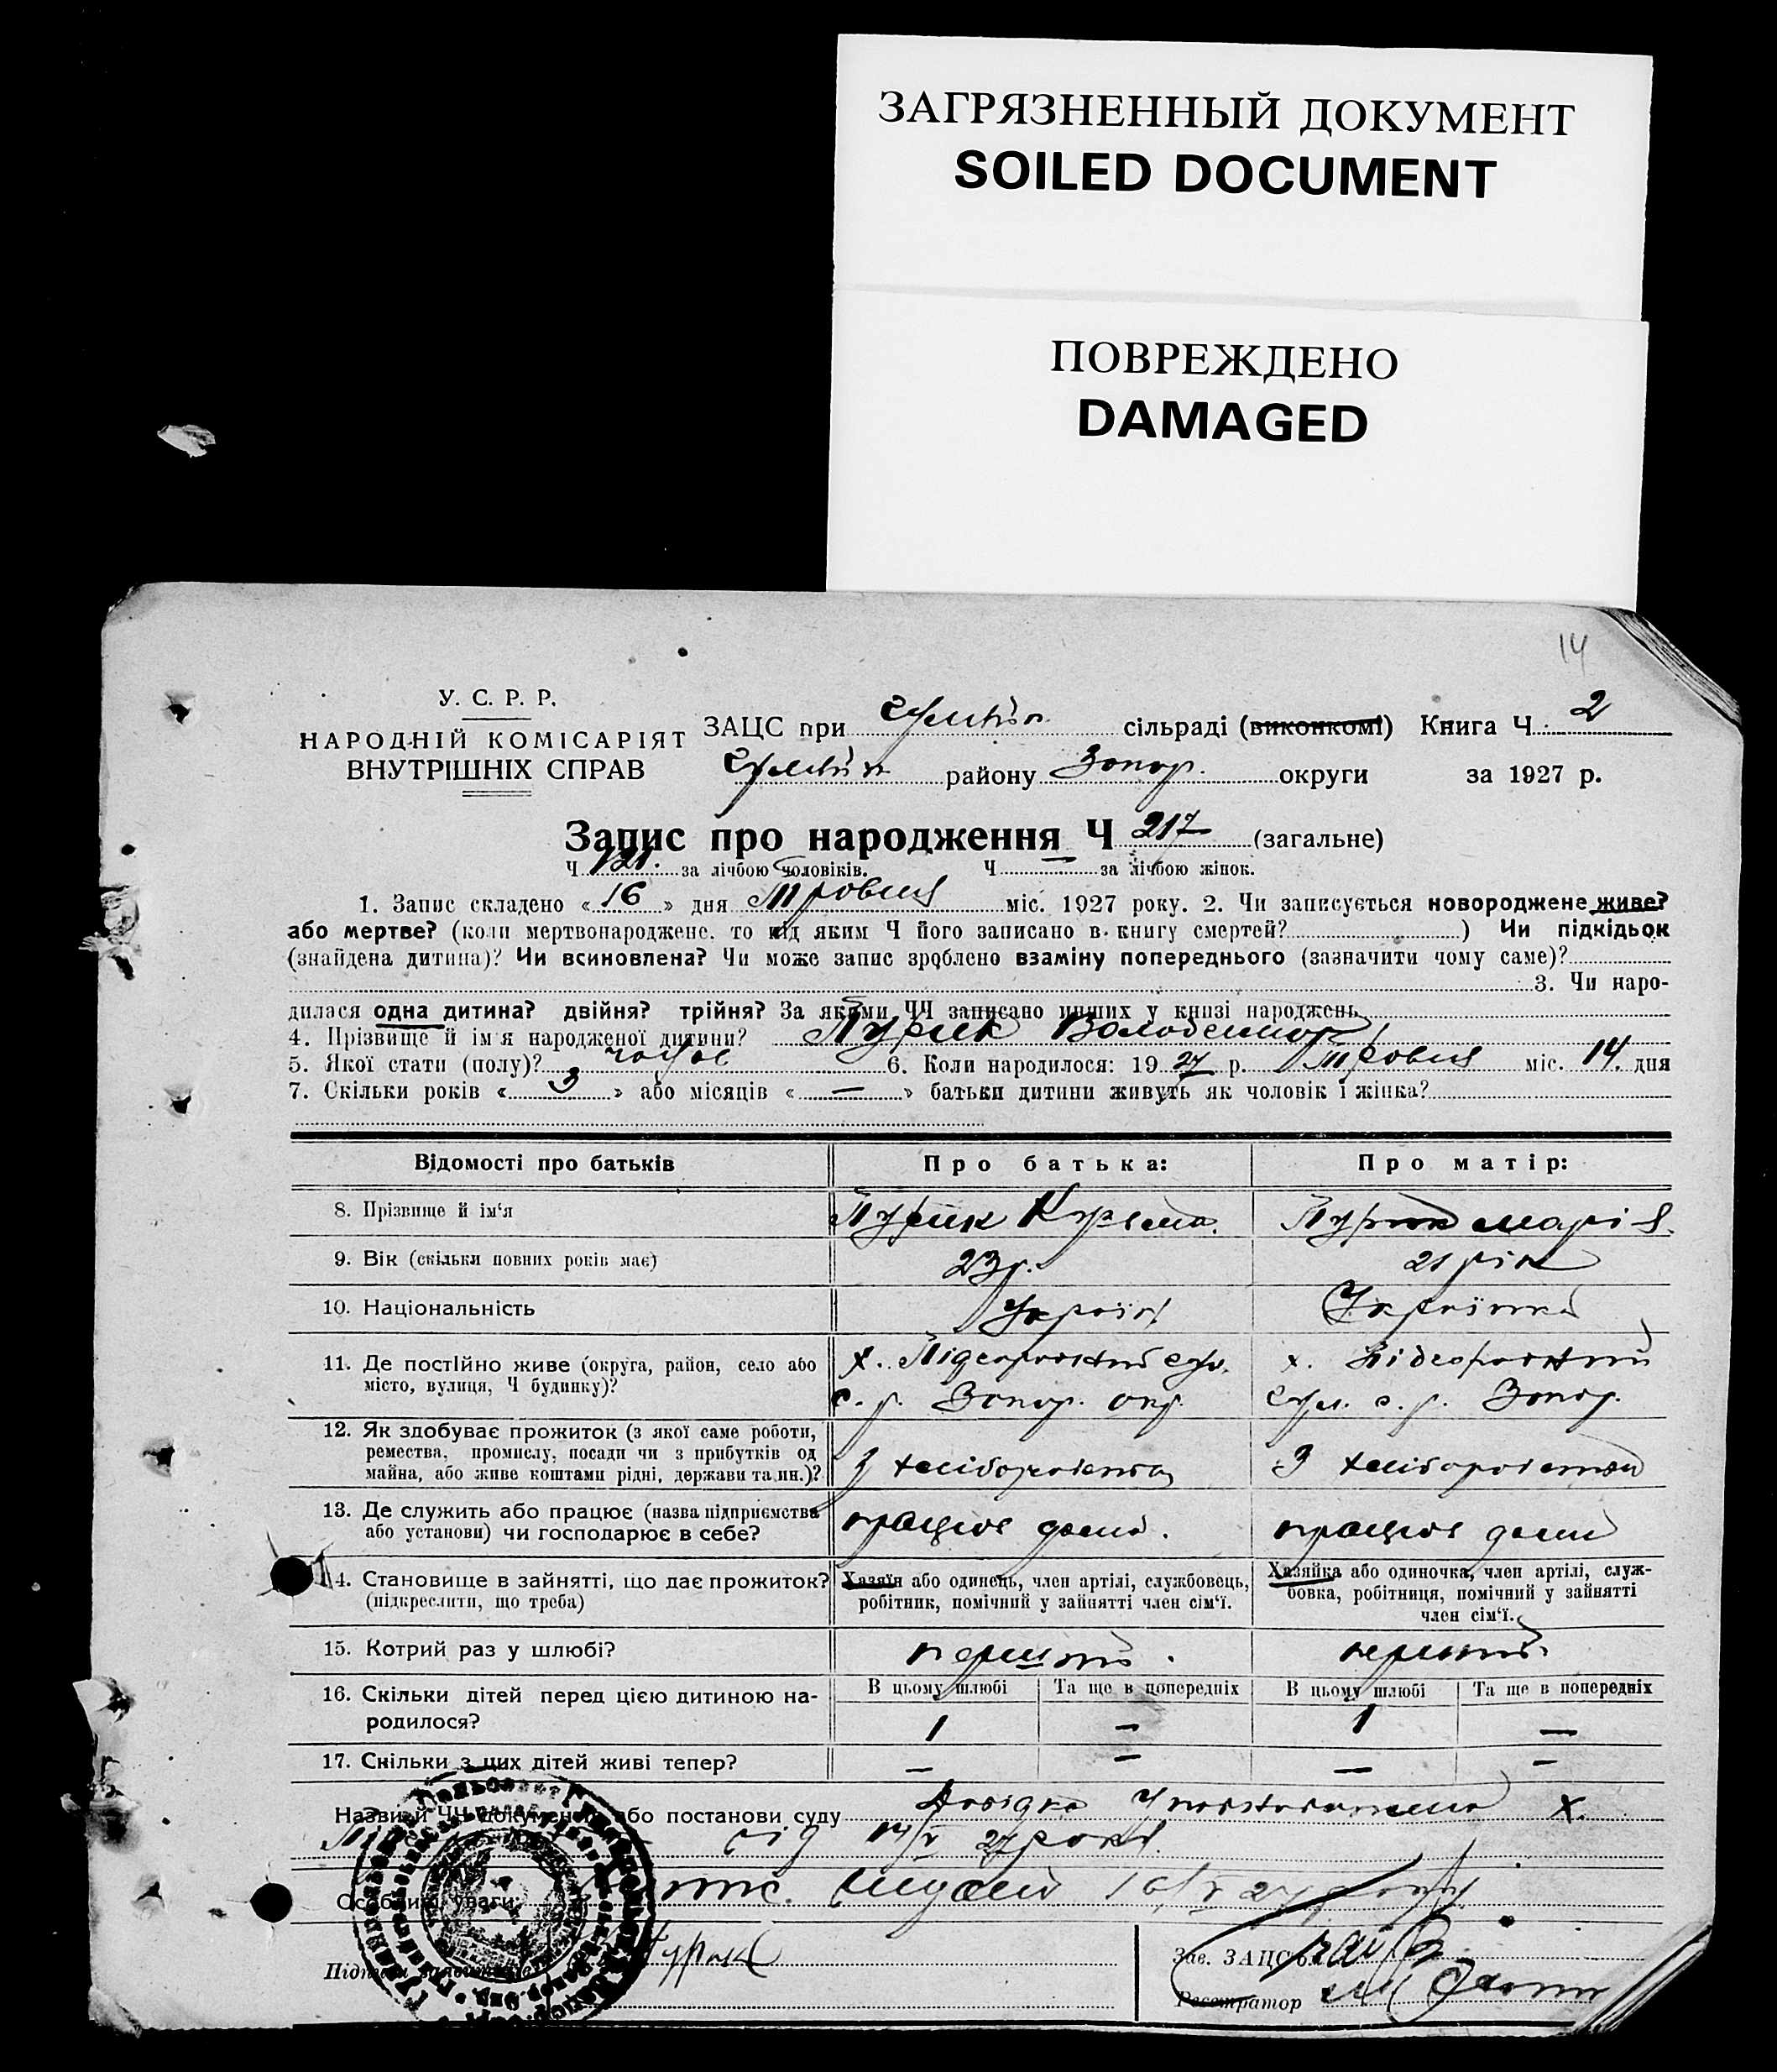 ЗАГРЯЗНЕННЫЙ ДОКУМЕНТ
SOILED DOCUMENT
ПОВРЕЖДЕНО
DAMAGED
14
У. С. Р. Р.
НАРОДНІЙ КОМІСАРІЯТ
ВНУТРІШНІХ СПРАВ
ЗАЦС при сільраді (виконкомі) Книга Ч. 2
району Запор. округи за 1927 р.
Запис про народження Ч 217 (загальне)
Ч 121. за лічбою чоловіків. Ч — за лічбою жінок.
1. Запис складено « 16 » дня Травня міс. 1927 року. 2. Чи записується новороджене живе?
або мертве? (коли мертвонароджене, то під яким Ч його записано в книгу смертей? ) Чи підкідьок
(знайдена дитина)? Чи всиновлена? Чи може запис зроблено взаміну попереднього (зазначити чому саме)?
3. Чи наро-
дилася одна дитина? двійня? трійня? За якими ЧЧ записано инших у книзі народжень
4. Прізвище й ім'я народженої дитини? Пурик Володимир
5. Якої стати (полу)? чолов 6. Коли народилося: 19 27 р. Травня міс. 14. дня
7. Скільки років « 3 » або місяців « — » батьки дитини живуть як чоловік і жінка?
Відомості про батьків Про батька: Про матір:
8. Прізвище й ім'я Пурик Кузьма. Пурик Марія.
9. Вік (скільки повних років має) 23 р. 21 рік
10. Національність Україн Українка
11. Де постійно живе (округа, район, село або х. х.
місто, вулиця, Ч будинку)? с. р. Запор. окр. с. р. Запор.
12. Як здобуває прожиток (з якої саме роботи,
ремества, промислу, посади чи з прибутків од
майна, або живе коштами рідні, держави та ин.)? З хліборобства З хліборобства
13. Де служить або працює (назва підприємства
або установи) чи господарює в себе? працює дома. працює дома
14. Становище в зайнятті, що дає прожиток? Хазяїн або одинець, член артілі, службовець, Хазяйка або одиночка, член артілі, служ-
(підкреслити, що треба) робітник, помічний у зайнятті член сім'ї. бовка, робітниця, помічний у зайнятті
член сім'ї.
15. Котрий раз у шлюбі? перший. перший.
16. Скільки дітей перед цією дитиною на- В цьому шлюбі Та ще в попередніх В цьому шлюбі Та ще в попередніх
родилося? 1 — 1 —
17. Скільки з цих дітей живі тепер? — — — —
Назви й ЧЧ документів або постанови суду Довідка Уповноваженого х.
від 14/V 27 року.
Особливі уваги: видано 16/V 27 року
Підписи заявників: Пурик Зав. ЗАЦС'ом
Реєстратор